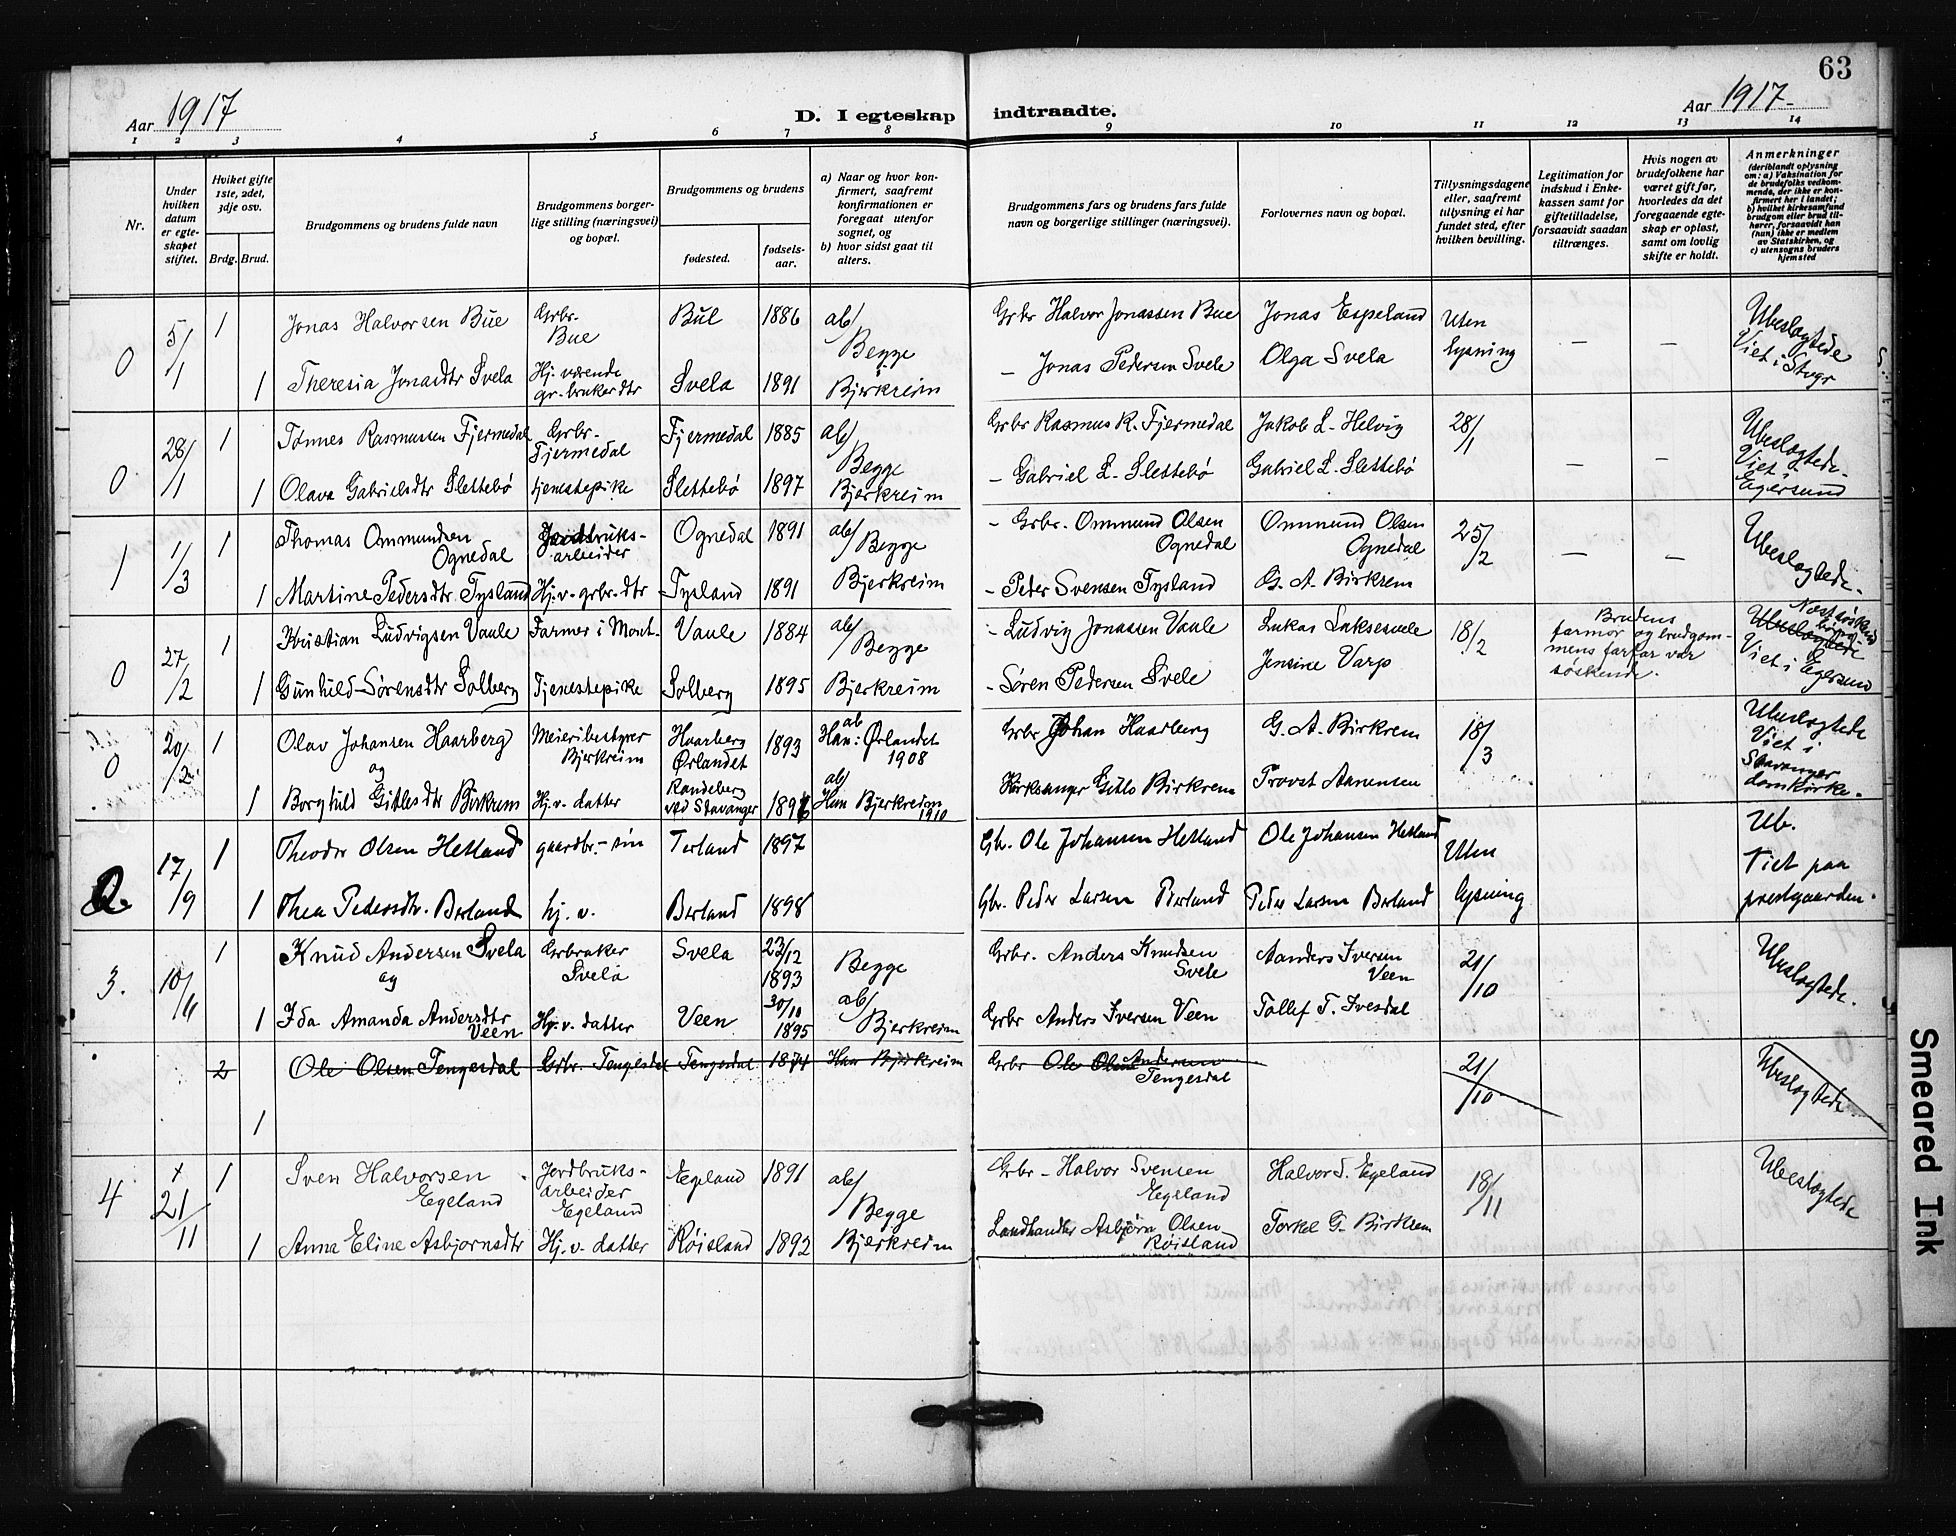 63
Aar 1917
D. I egteskap indtraadte.
Aar 1917
1 2 3 4 5 6 7 8 9 10 11 12 13 14
Nr.
Under hvilken datum er egteskapet stiftet.
Hviket gifte 1ste, 2det, 3dje osv.
Brdg. Brud.
Brudgommens og brudens fulde navn
Brudgommens borgerlige stilling (næringsvei) og bopæl.
Brudgommens og brudens
fødested.
fødsels-aar.
a) Naar og hvor konfirmert, saafremt konfirmationen er foregaat utenfor sognet, og
b) hvor sidst gaat til alters.
Brudgommens fars og brudens fars fulde navn og borgerlige stillinger (næringsvei).
Forlovernes navn og bopæl.
Tillysningsdagene eller, saafremt tillysning ei har fundet sted, efter hvilken bevilling.
Legitimation for indskud i Enkekassen samt for giftetilladelse, forsaavidt saadan tiltrænges.
Hvis nogen av brudefolkene har været gift før, hvorledes da det foregaaende egteskap er opløst, samt om lovlig skifte er holdt.
Anmerkninger
(deriblandt oplysning om: a) Vaksination for de brudefolks vedkommende, der ikke er konfirmert her i landet; b) hvilket kirkesamfund brudgom eller brud tilhører, forsaavidt han (hun) ikke er medlem av Statskirken, og c) utensogns bruders hjemsted
0 5/1 1 Jonas Halvorsen Bue Grbr. Bue Bue 1886 ab/ Begge Grbr Halvor Jonassen Bue Jonas Espeland Uten lysning — — Ubeslegtede Viet i Stvgr
1 Theresia Jonasdtr Svela Hj. værende gr. bruker dtr Svela 1891 Bjerkreim — Jonas Pedersen Svele Olga Svela
0 28/1 1 Tønnes Rasmussen Fjermedal Grbr. Fjermedal Fjermedal 1885 ab/ Begge Grbr Rasmus R. Fjermedal Jakob L. Helvig 28/1 — — Ubeslegtede. Viet i Egersund
1 Olava Gabrielsdtr Slettebø tjenestepike Slettebø 1897 Bjerkreim — Gabriel L. Slettebø Gabriel L. Slettebø
1 1/3 1 Thomas Ommundsen Ognedal Jordbruks-arbeider Ognedal 1891 ab/ Begge - Grbr. Ommund Olsen Ognedal Ommund Olsen Ognedal 25/2 — — Ubeslegtede.
1 Martine Pedersdtr. Tysland Hj. v. grbr. dtr Tysland 1891 Bjerkreim - Peder Svensen Tysland G. A. Birkrem
0 27/2 1 Kristian Ludvigsen Vaule Farmer i Mont. Vaule 1884 ab/ Begge - Ludvig Jonassen Vaule Lukas Laksesvele 18/2 Brudens farmor og brudgommens farfar var søskende. Ubeslegtede Viet i Egersund
1 Gunhild Sørensdtr Solberg Tjenestepike Solberg 1895 Bjerkreim - Søren Pedersen Svele Jensine Varp
0 20/2 1 Olav Johansen Haarberg og Meieribestyrer Bjerkreim Haarberg Ørlandet 1893 ab Han: Ørlandet 1908 Grbr Johan Haarberg G. A. Birkrem 18/3 Ubeslegtede Viet i Stavanger domkirke.
1 Borghild Gitlesdtr Birkrem Hj. v. datter Randeberg ved Stavanger ab/ Hun Bjerkreim 1910 Kirksanger Gitle Birkrem Provst Aanensen
17/9 1 Theodor Olsen Hetland gaardbr. - søn Terland 1897 Gbr. Ole Johansen Hetland Ole Johansen Hetland Uten lysning Ub. Viet paa prestgaarden.
1 Thea Pedersdtr. Berland hj. v. Berland 1898 Gbr. Peder Larsen Berland Peder Larsen Berland
3. 10/11 1 Knud Andersen Svela og Grbruker Svela Svela 23/12 1893 Begge ab/ Grbr. Anders Knudsen Svele Aanders Iversen Veen 21/10 Ubeslegtede.
1 Ida Amanda Andersdtr Veen Hj. v. datter Veen 30/10 1895 Bjerkreim Grbr Anders Iversen Veen Tollef T. Ivesdal
2 Ole Olsen Tengesdal Grbr. Tengesdal Tengesdal 1874 Han Bjerkreim Grbr Ole Olsen Andersen Tengesdal 21/10 Ubeslegtede
1
4 21/11 1 Sven Halvorsen Egeland Jordbruks-arbeider Egeland Egeland 1891 ab/ Begge Grbr - Halvor Svensen Egeland Halvor S. Egeland 18/11 Ubeslegtede
1 Anna Eline Asbjornsdtr Hj. v. datter Røisland 1892 Bjerkreim Landhandler Asbjørn Olsen Røisland Torkel G. Birkrem
Smeared Ink